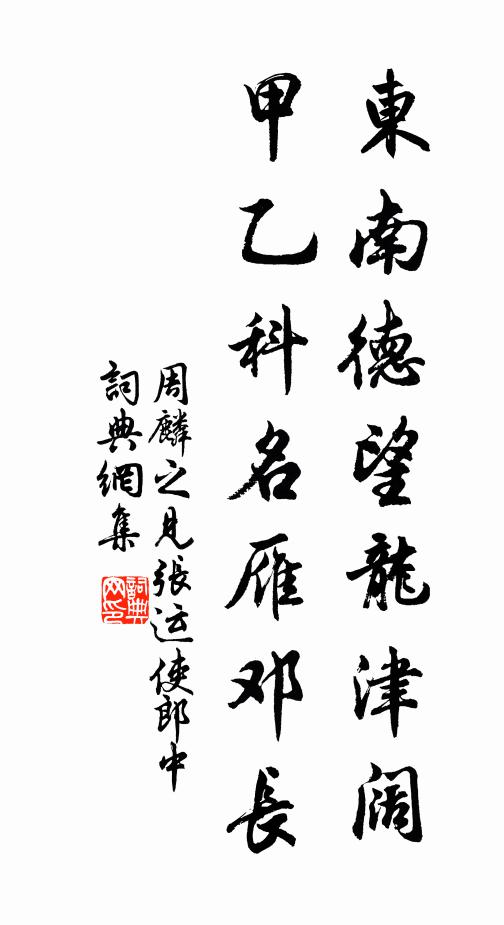 東南德望龍津阔
甲乙科名雁邓長
周麟之见張运使郎中
詞典網集
詞典
网印